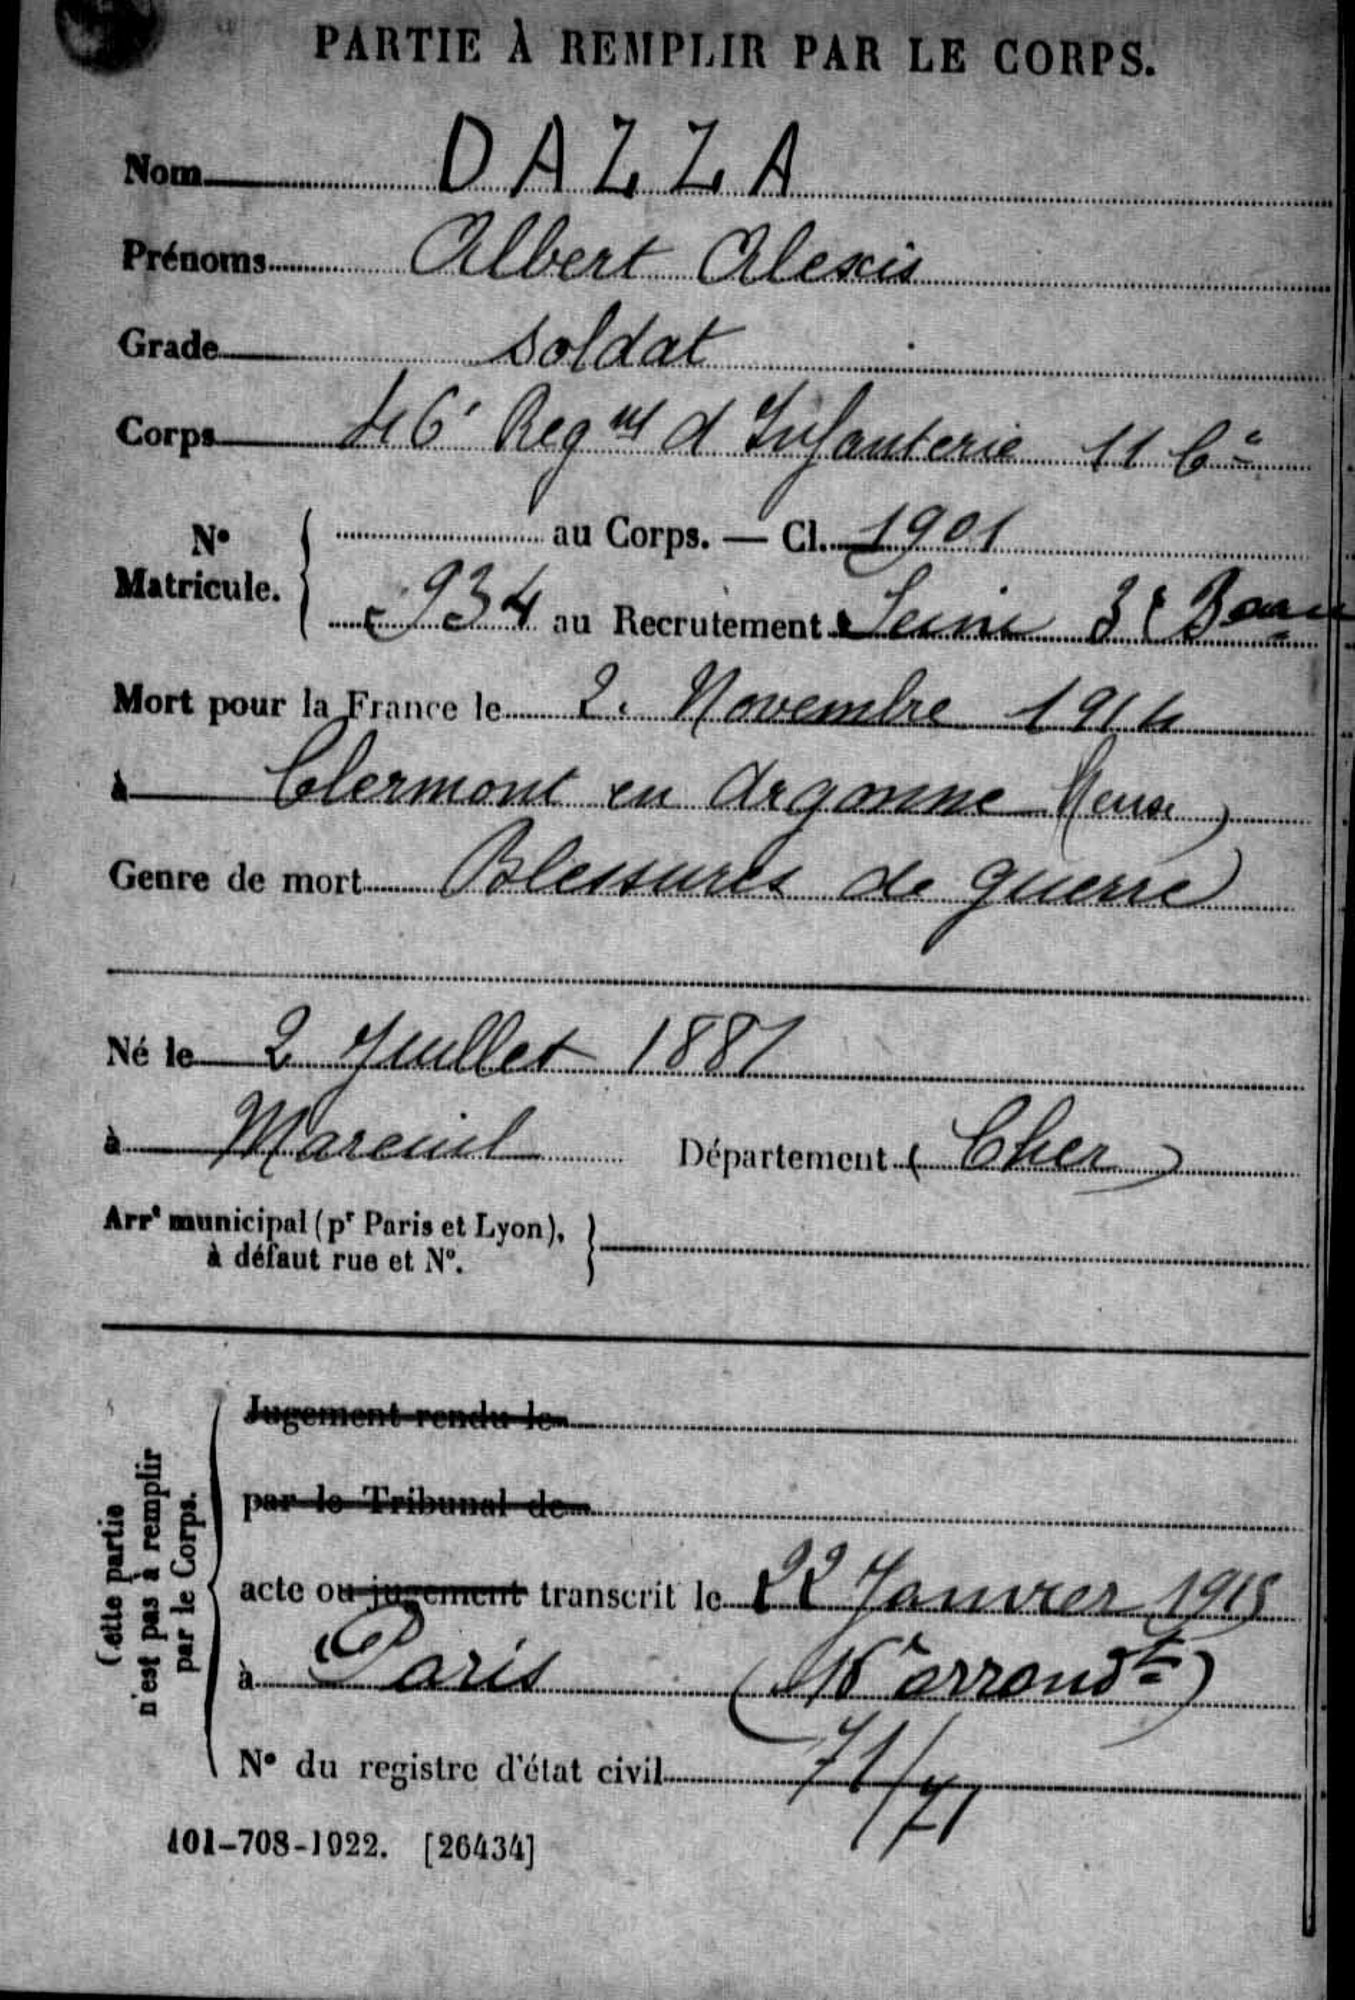 PARTIE À REMPLIR PAR LE CORPS.
Nom DAZZA
Prénoms Albert Alexis
Grade soldat
Corps 46e Regnt d'Infanterie 11 Cie
No Matricule. au Corps. — Cl. 1901
934 au Recrutement Seine 3e Bau
Mort pour la France le 2. Novembre 1914
à Clermont en Argonne Meuse)
Genre de mort Blessures de guerre
Né le 2 Juillet 1881
à Mareuil Département (Cher)
Arrt municipal (pr Paris et Lyon),
à défaut rue et No.
Jugement rendu le
par le Tribunal de
acte ou jugement transcrit le 22 Janvier 1915
à Paris ( arrondt)
No du registre d'état civil 71/71
(Cette partie
n'est pas à remplir
par le Corps.
101-708-1922. [26434]